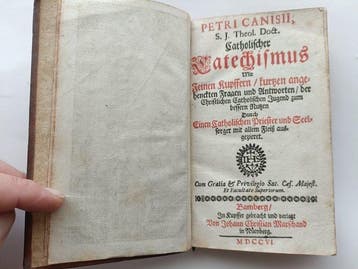 PETRI CANISII,
S. J. Theol. Doct.
Catholischer
Catechismus
Mit
Feinen Kupffern / kurtzen ange-
henckten Fragen und Antworten / der
Christlichen Catholischen Jugend zum
bessern Nutzen
Durch
Einen Catholischen Priester und Seel-
sorger mit allem Fleiß auß-
gezieret.
IHS
Cum Gratia & Privilegio Sac. Cæs. Majest.
Et Facultate Superiorum.
Bamberg /
In Kupffer gebracht und verlegt
Von Johann Christian Marchand
in Nürnberg.
MDCCVI.